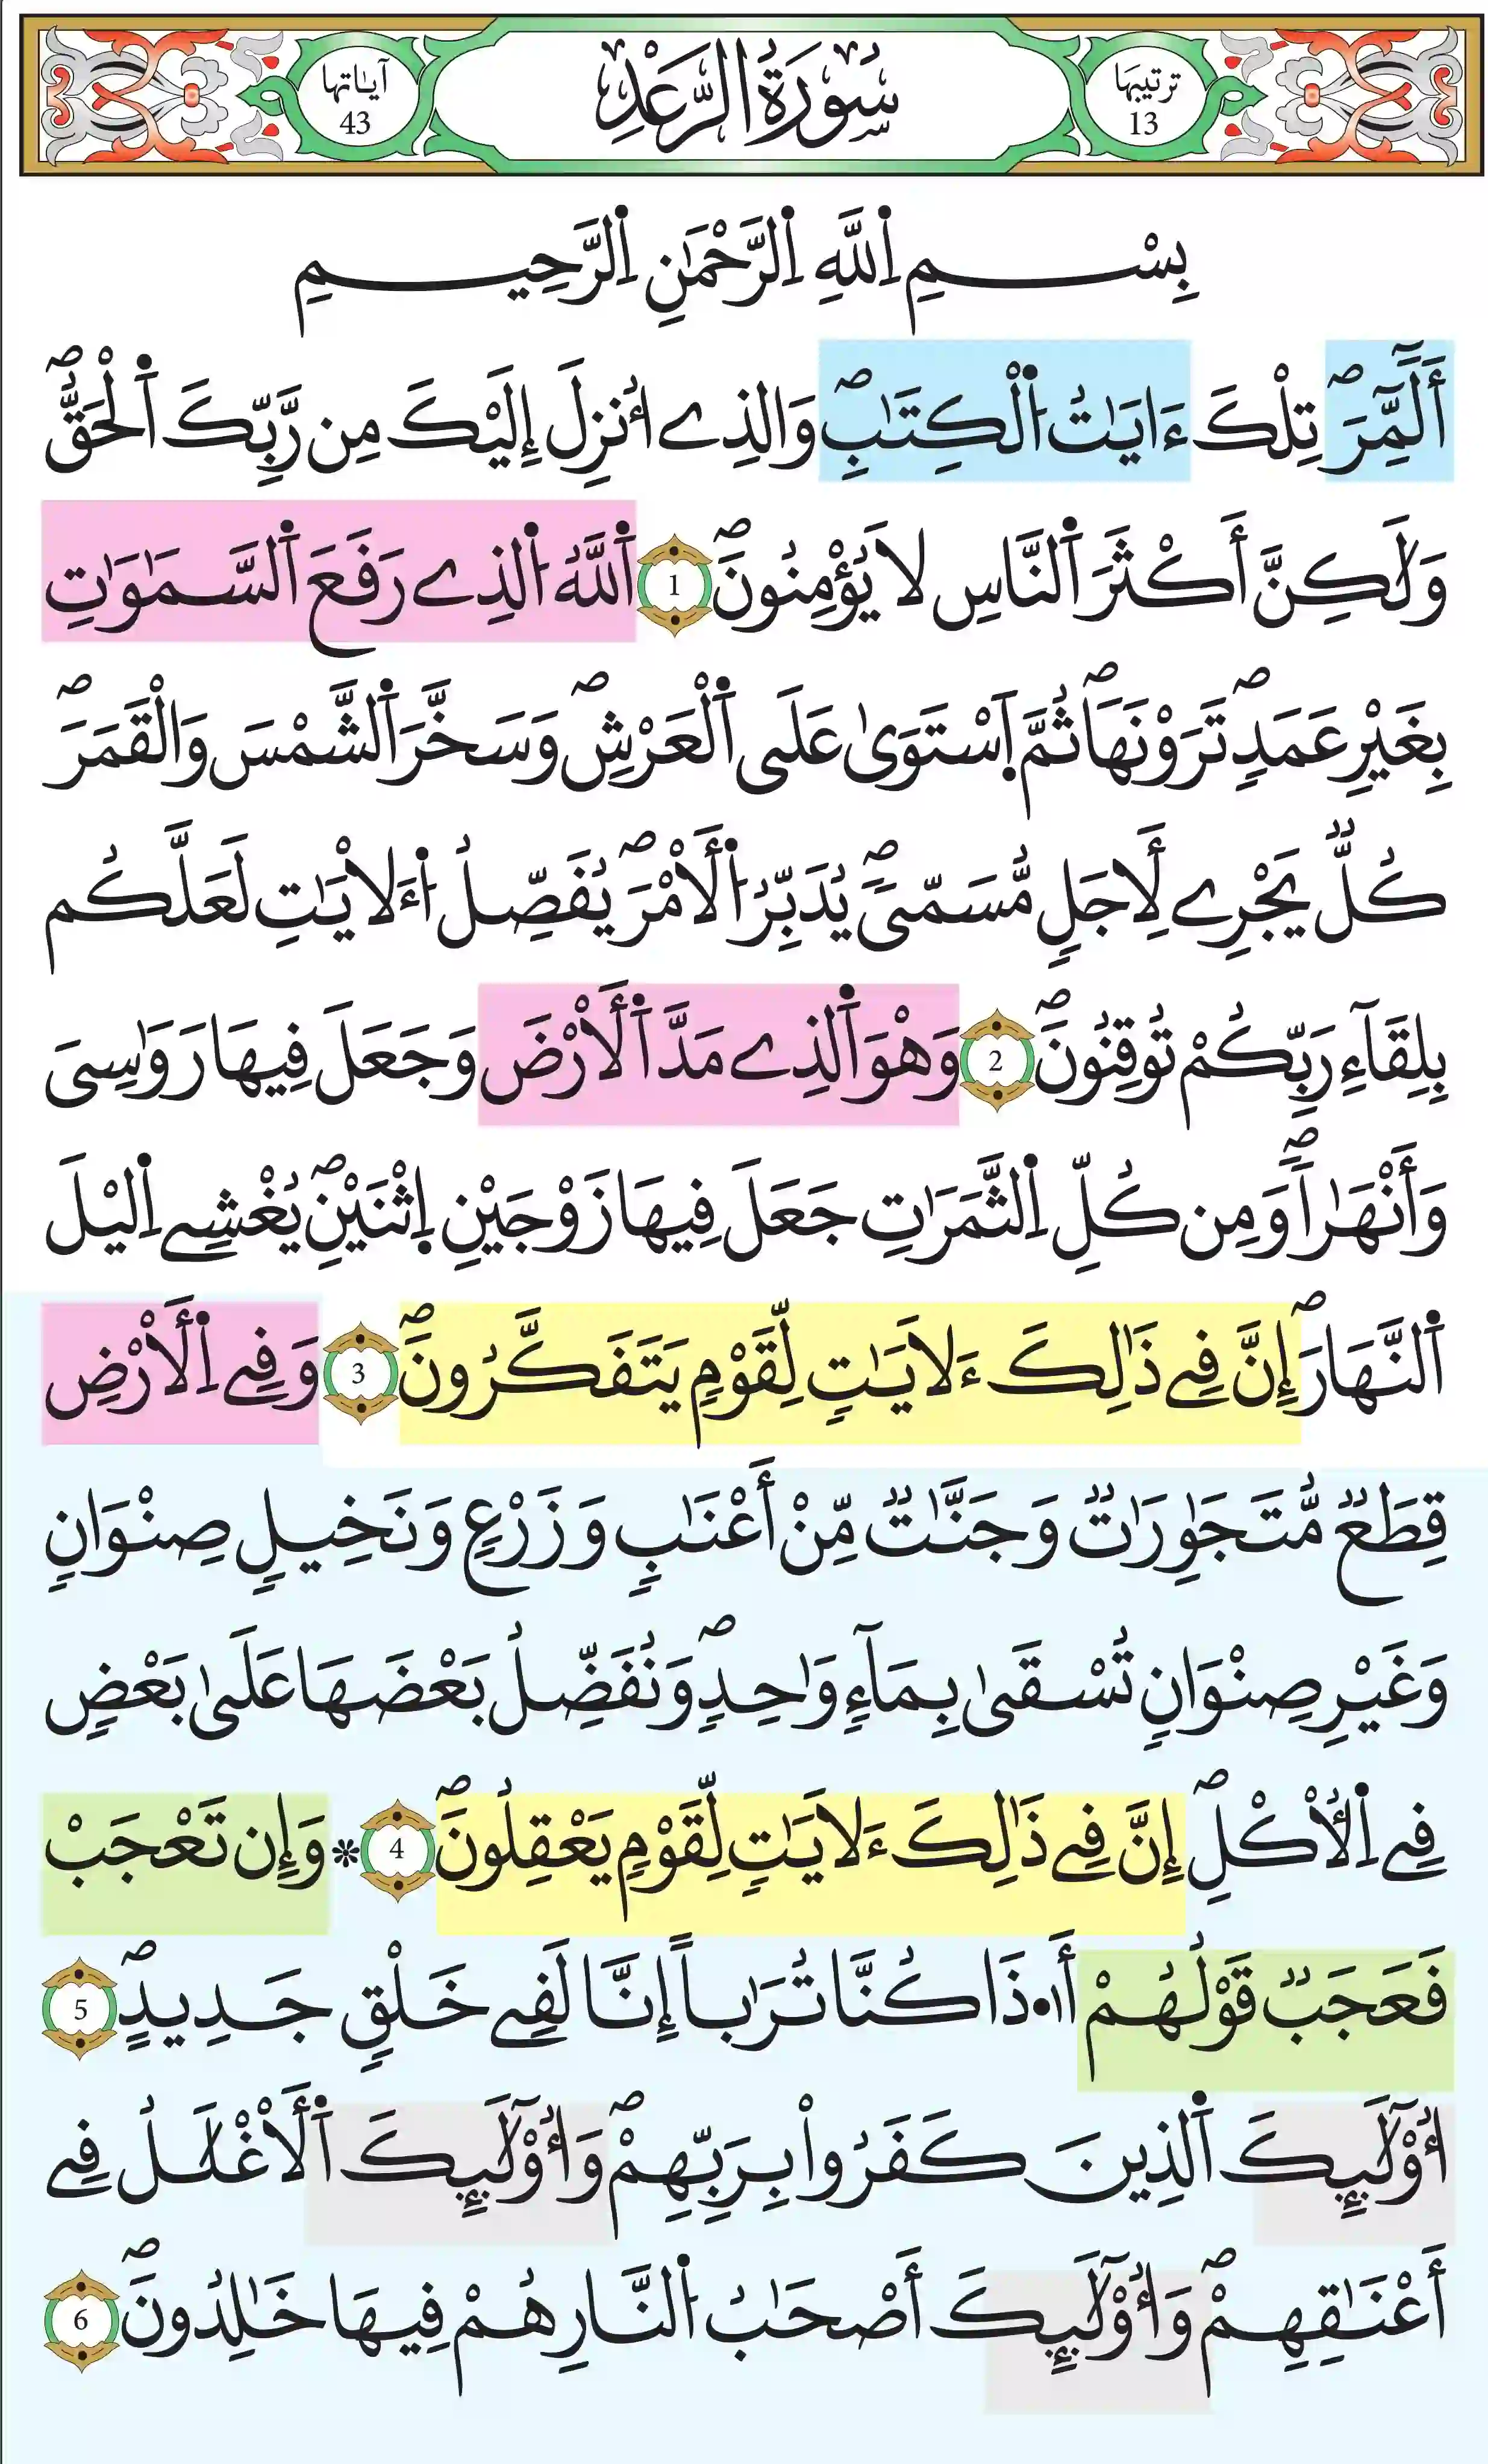 ترتيبها
13
سُورَةُ الرَّعْدِ
آياتها
43
بِسْمِ اِ۬للَّهِ اِ۬لرَّحْمَٰنِ اِ۬لرَّحِيمِ
أَلَٓمِّٓرَۖ تِلْكَ ءَايَٰتُ اُ۬لْكِتَٰبِۖ وَالذِےٓ أُنزِلَ إِلَيْكَ مِن رَّبِّكَ اَ۬لْحَقُّۖ
وَلَٰكِنَّ أَكْثَرَ اَ۬لنَّاسِ لَا يُؤْمِنُونَۖ 1 اَ۬للَّهُ اُ۬لذِے رَفَعَ اَ۬لسَّمَٰوَٰتِ
بِغَيْرِ عَمَدٖۖ تَرَوْنَهَاۖ ثُمَّ اَ۪سْتَوَىٰ عَلَى اَ۬لْعَرْشِۖ وَسَخَّرَ اَ۬لشَّمْسَ وَالْقَمَرَۖ
كُلّٞ يَجْرِے لِأَجَلٖ مُّسَمّىٗۖ يُدَبِّرُ اُ۬لْأَمْرَۖ يُفَصِّلُ اُ۬لْأٓيَٰتِ لَعَلَّكُم
بِلِقَآءِ رَبِّكُمْ تُوقِنُونَۖ 2 وَهْوَ اَ۬لذِے مَدَّ اَ۬لْأَرْضَ وَجَعَلَ فِيهَا رَوَٰسِىَ
وَأَنْهَٰراٗۖ وَمِن كُلِّ اِ۬لثَّمَرَٰتِ جَعَلَ فِيهَا زَوْجَيْنِ اِ۪ثْنَيْنِۖ يُغْشِے اِ۬ليْلَ
اَ۬لنَّهَارَۖ إِنَّ فِے ذَٰلِكَ ءَلَايَٰتٖ لِّقَوْمٖ يَتَفَكَّرُونَۖ 3 وَفِے اِ۬لْأَرْضِ
قِطَعٞ مُّتَجَٰوِرَٰتٞ وَجَنَّٰتٞ مِّنْ أَعْنَٰبٖ وَزَرْعٖ وَنَخِيلٖ صِنْوَانٖ
وَغَيْرِ صِنْوَانٖ تُسْقَىٰ بِمَآءٖ وَٰحِدٖۖ وَنُفَضِّلُ بَعْضَهَا عَلَىٰ بَعْضٖ
فِے اِ۬لْأُكْلِۖ إِنَّ فِے ذَٰلِكَ ءَلَايَٰتٖ لِّقَوْمٖ يَعْقِلُونَۖ 4 * وَإِن تَعْجَبْ
فَعَجَبٞ قَوْلُهُمْ أَ.ا۟ذَا كُنَّا تُرَٰباً إِنَّا لَفِے خَلْقٖ جَدِيدٍۖ 5
أُوْلَٰٓئِكَ اَ۬لذِينَ كَفَرُواْ بِرَبِّهِمْۖ وَأُوْلَٰٓئِكَ اَ۬لْأَغْلَٰلُ فِے
أَعْنَٰقِهِمْۖ وَأُوْلَٰٓئِكَ أَصْحَٰبُ اُ۬لنَّارِ هُمْ فِيهَا خَٰلِدُونَۖ 6